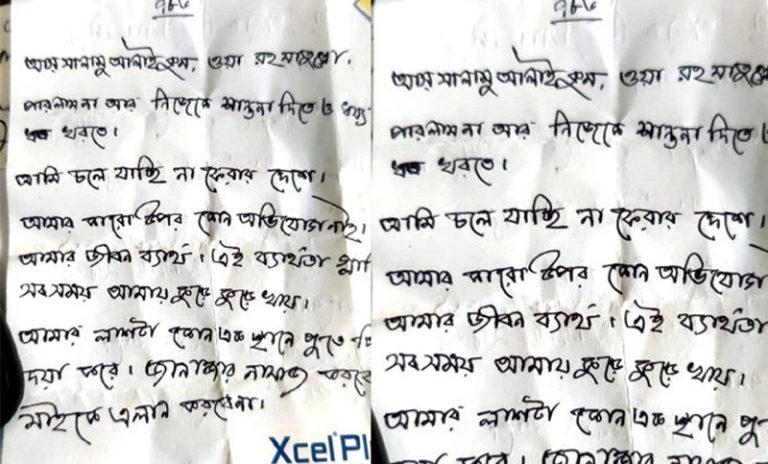 ৭৮৬
আস সালামু আলাইকুম, ওয়া রহমাতুল্লা.
পারলাম না আর নিজেকে শান্তনা দিতে ও
ধরতে।
আমি চলে যাচ্ছি না ফেরার দেশে।
আমার কারো উপর কোন অভিযোগ নাই।
আমার জীবন ব্যার্থ। এই ব্যার্থতা
সব সময় আমায় কুড়ে কুড়ে খায়।
আমার লাশটা কোন এক স্থানে পুতে
দয়া করে। জানাজার নামাজ করবে
মাইকে এলান করবেনা।
XcelPl
৭৮৬
আস সালামু আলাইকুম, ওয়া
পারলাম না আর নিজেকে শান্তনা দিতে
ধরতে।
আমি চলে যাচ্ছি না ফেরার দেশে।
আমার কারো উপর কোন অভিযোগ
আমার জীবন ব্যার্থ। এই ব্যার্থতা
সব সময় আমায় কুড়ে কুড়ে খায়।
আমার লাশটা কোন এক স্থানে পু